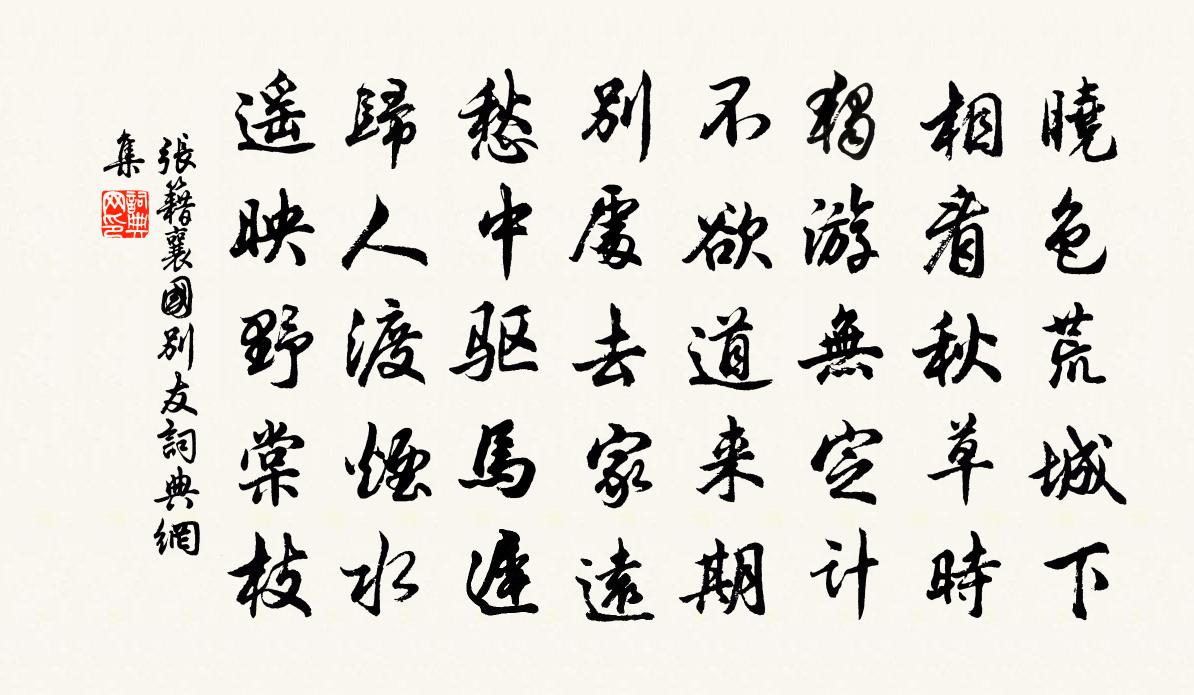 曉色荒城下
相看秋草時
獨游無定計
不欲道来期
別處去家遠
愁中驱馬遲
歸人渡煙水
遥映野棠枝
張籍襄國別友詞典網
集
詞典
网印